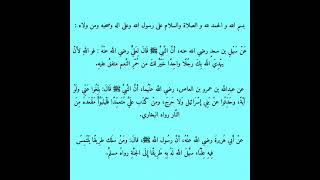 بسم الله و الحمد لله و الصلاة والسلام على رسول الله وعلى اله وصحبه ومن ولاه :
عَنْ سَهْلِ بن سعدٍ رضي الله عنه، أنَّ النَّبِيَّ ﷺ قَالَ لِعَلِيٍّ رضي الله عَنْهُ : فو اللَّهِ لأَنْ
يَهْدِيَ اللَّه بِكَ رَجُلًا واحِدًا خَيْرٌ لكَ من حُمْرِ النَّعم متفقٌ عليهِ.
عن عبدالله بن عمرو بن العاص، رضي الله عنْهُما، أنَّ النَّبِيَّ ﷺ قَالَ: بلِّغُوا عَنِّي ولَوْ
آيَةً، وحَدِّثُوا عنْ بني إسْرَائيل وَلا حَرجَ، ومنْ كَذَب علَيَّ مُتَعمِّدًا فَلْيَتبَوَّأْ مَقْعَدهُ من
النَّار رواه البخاري.
عَنْ أبي هُريرةَ رضي الله عَنْهُ، أنَّ رسُول اللَّه ﷺ، قالَ: ومَنْ سَلَك طرِيقًا يَلْتَمِسُ
فِيهِ عِلْمًا، سهَّلَ اللَّه لَهُ بِهِ طَرِيقًا إلى الجَنَّةِ رواهُ مسلمٌ.